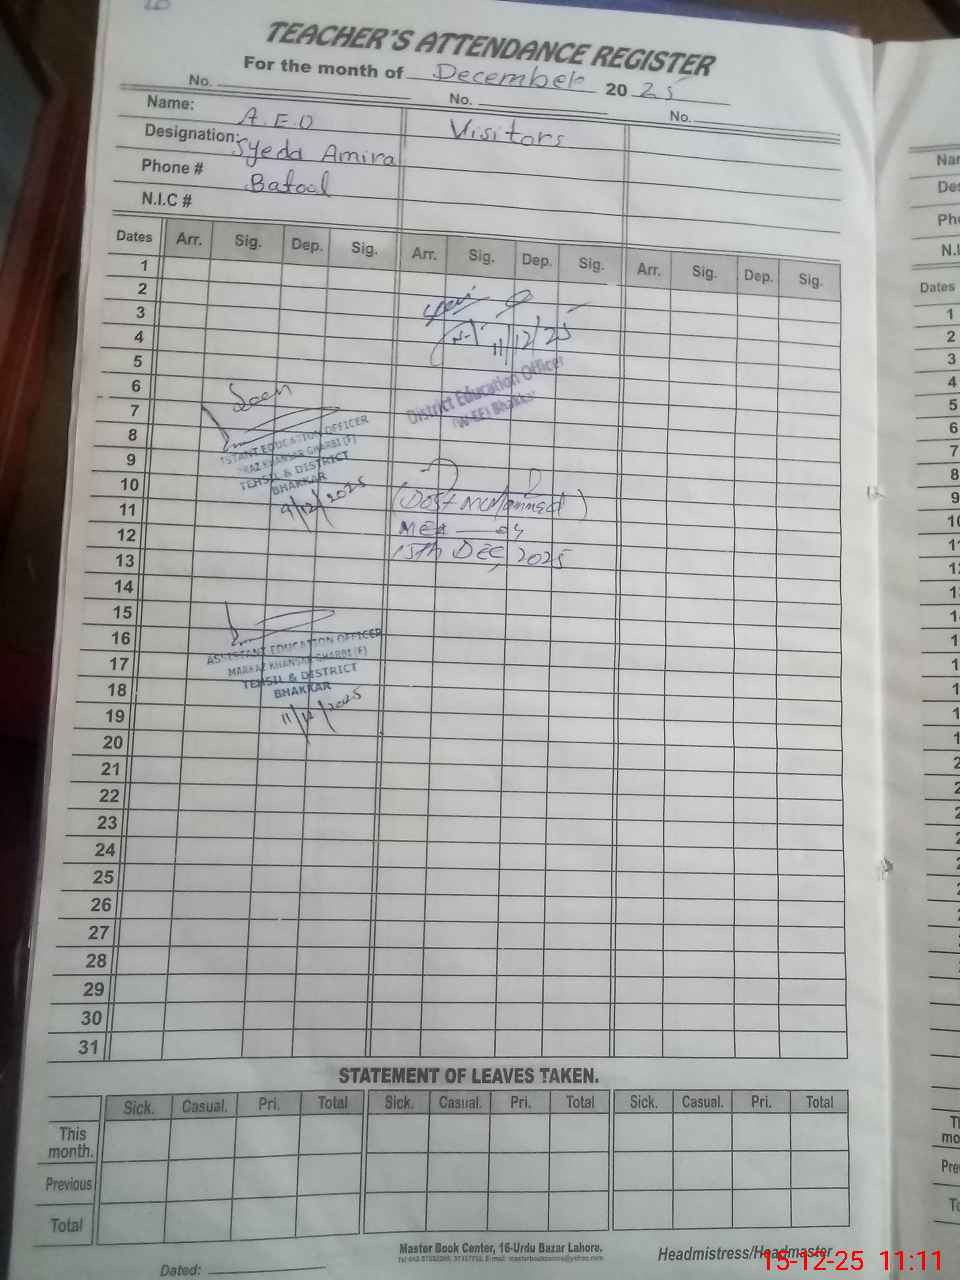 TEACHER'S ATTENDANCE REGISTER
For the month of December 2025
No. No. No.
Name: A.E.O Visitors
Designation: Syeda Amira
Phone # Batool
N.I.C #
Dates Arr. Sig. Dep. Sig. Arr. Sig. Dep. Sig. Arr. Sig. Dep. Sig.
1
2
3
4
11/12/25
5
District Education Officer
(W-EE) Bhakkar
6
Seen
7
8
ISTANT EDUCATION OFFICER
9
KHANSAR GHARBI (F)
TEHSIL & DISTRICT
10
BHAKKAR
9/12/2025
11
(Dost Mohammad)
12
MEA - 04
13
15th DEC, 2025
14
15
16
ASSISTANT EDUCATION OFFICER
17
MARKAZ KHANSAR GHARBI (F)
TEHSIL & DISTRICT
18
BHAKKAR
19
11/12/2025
20
21
22
23
24
25
26
27
28
29
30
31
STATEMENT OF LEAVES TAKEN.
Sick. Casual. Pri. Total Sick. Casual. Pri. Total Sick. Casual. Pri. Total
This
month.
Previous
Total
Master Book Center, 16-Urdu Bazar Lahore.
Headmistress/Headmaster
Dated:
15-12-25 11:11
Nar
Des
Pho
N.I
Dates
1
2
3
4
5
6
7
8
9